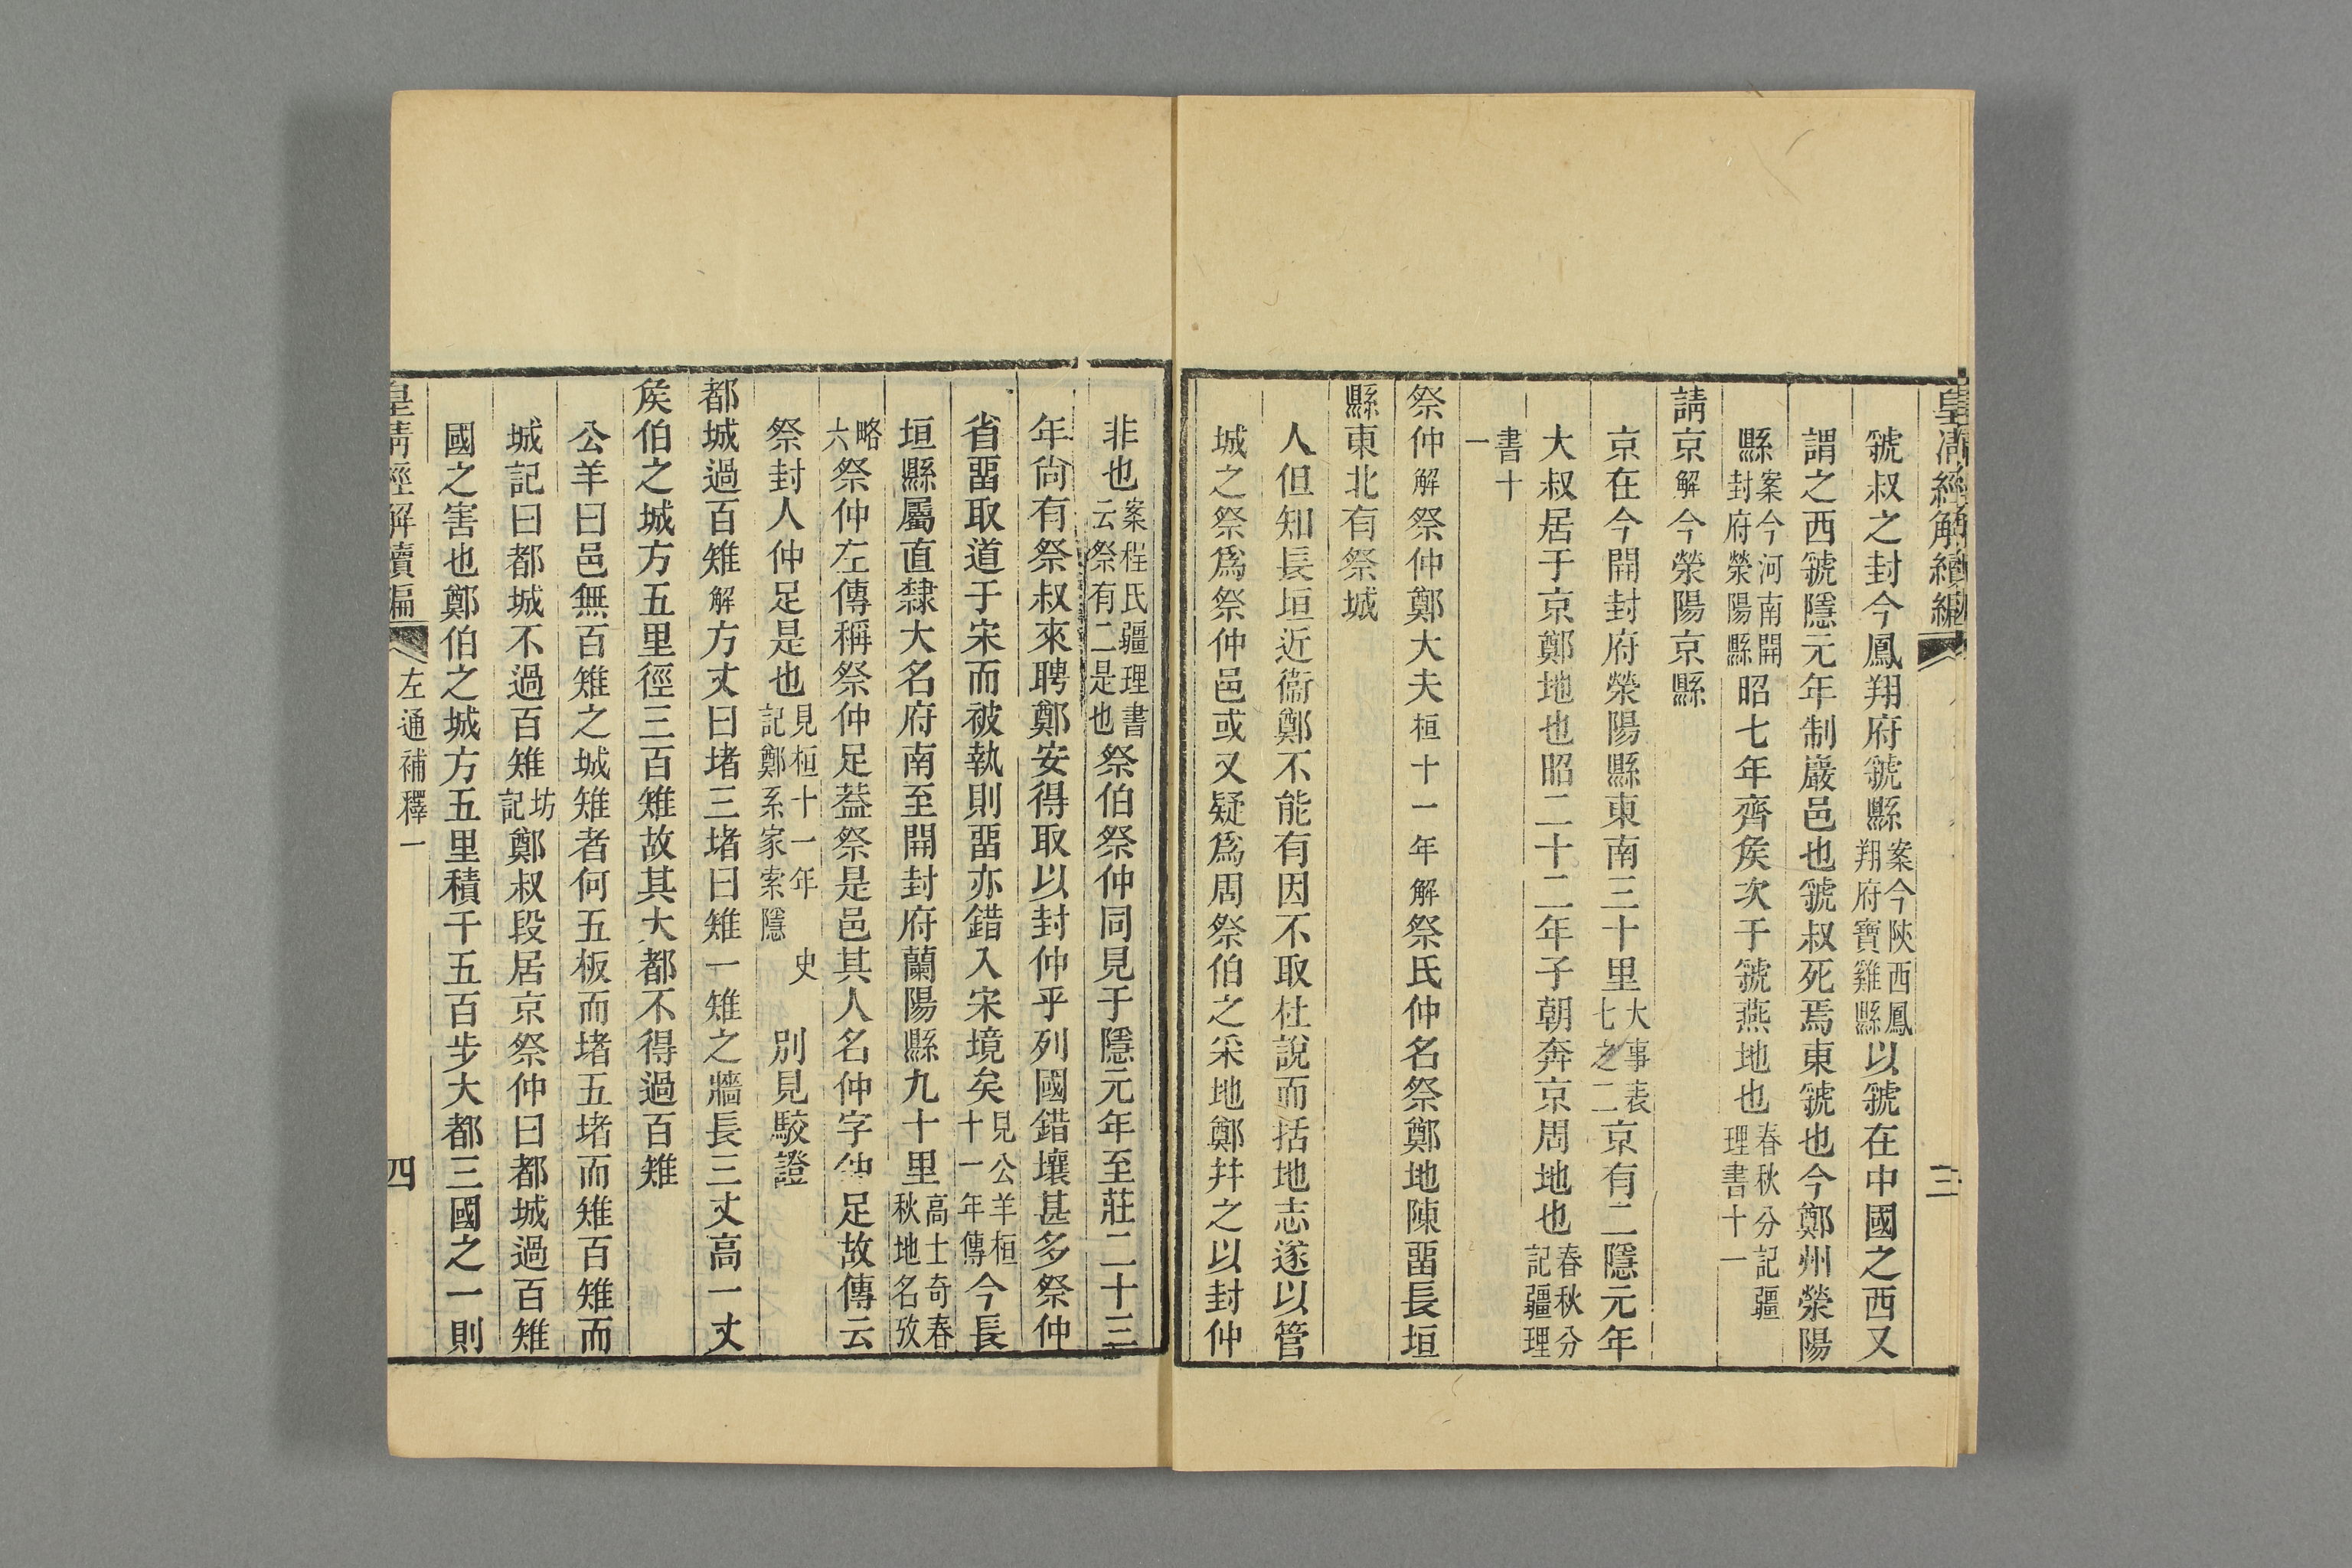 皇清經解續編
三
虢叔之封今鳳翔府虢縣案今陝西鳳翔府寶雞縣以虢在中國之西又
謂之西虢隱元年制巖邑也虢叔死焉東虢也今鄭州滎陽
縣案今河南開封府滎陽縣昭七年齊矦次于虢燕地也春秋分記疆理書十一
請京解今滎陽京縣
京在今開封府滎陽縣東南三十里大事表七之二京有二隱元年
大叔居于京鄭地也昭二十二年子朝奔京周地也春秋分記疆理
書十一
祭仲解祭仲鄭大夫桓十一年解祭氏仲名祭鄭地陳畱長垣
縣東北有祭城
人但知長垣近衞鄭不能有因不取杜說而括地志遂以管
城之祭爲祭仲邑或又疑爲周祭伯之采地鄭幷之以封仲
非也案程氏疆理書云祭有二是也祭伯祭仲同見于隱元年至莊二十三
年尙有祭叔來聘鄭安得取以封仲乎列國錯壤甚多祭仲
省畱取道于宋而被執則畱亦錯入宋境矣見公羊桓十一年傳今長
垣縣屬直隸大名府南至開封府蘭陽縣九十里高士奇春秋地名攷
略六祭仲左傳稱祭仲足葢祭是邑其人名仲字仲足故傳云
祭封人仲足是也見桓十一年史記鄭系家索隱別見駮證
都城過百雉解方丈曰堵三堵曰雉一雉之牆長三丈高一丈
矦伯之城方五里徑三百雉故其大都不得過百雉
公羊曰邑無百雉之城雉者何五板而堵五堵而雉百雉而
城記曰都城不過百雉坊記鄭叔段居京祭仲曰都城過百雉
國之害也鄭伯之城方五里積千五百步大都三國之一則
皇清經解續編
左通補釋一
四